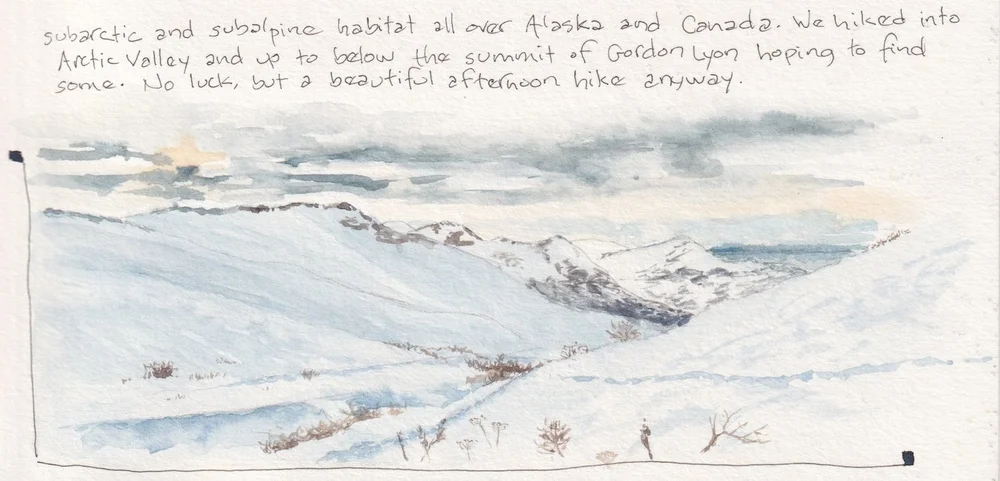 subarctic and subalpine habitat all over Alaska and Canada. We hiked into
Arctic Valley and up to below the summit of Gordon Lyon hoping to find
some. No luck, but a beautiful afternoon hike anyway.